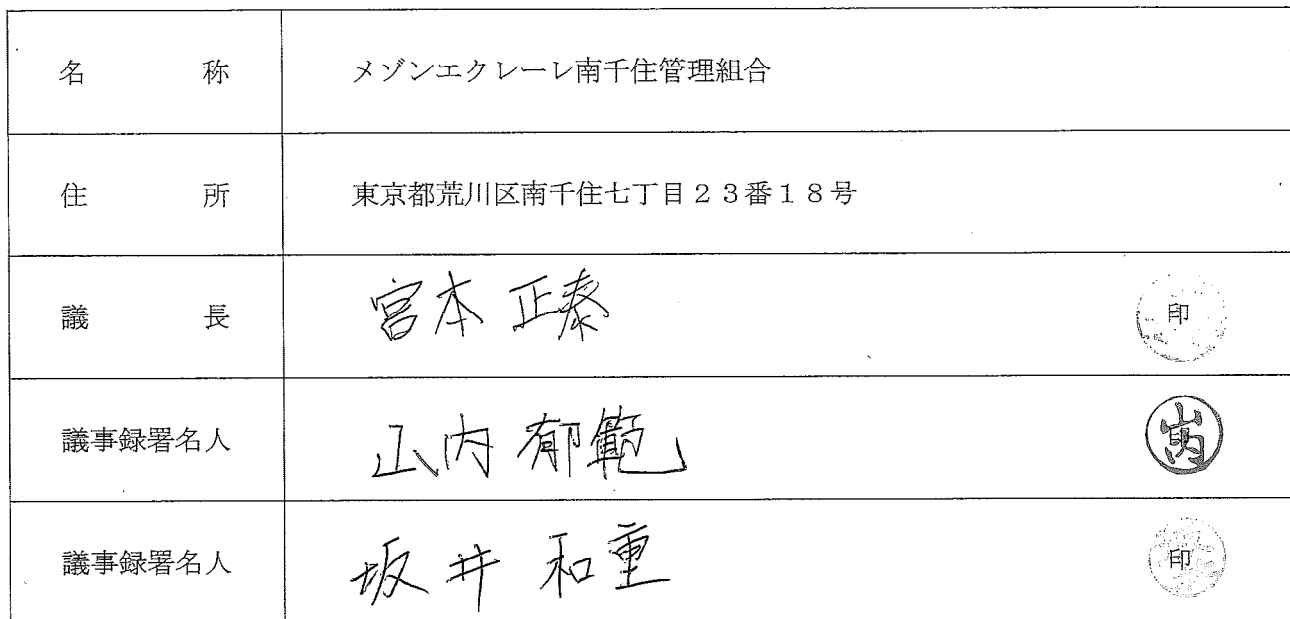 名　　　称　メゾンエクレーレ南千住管理組合
住　　　所　東京都荒川区南千住七丁目２３番１８号
議　　　長　宮本 正泰　印
議事録署名人　山内 郁範　山内 印
議事録署名人　坂井 和重　印